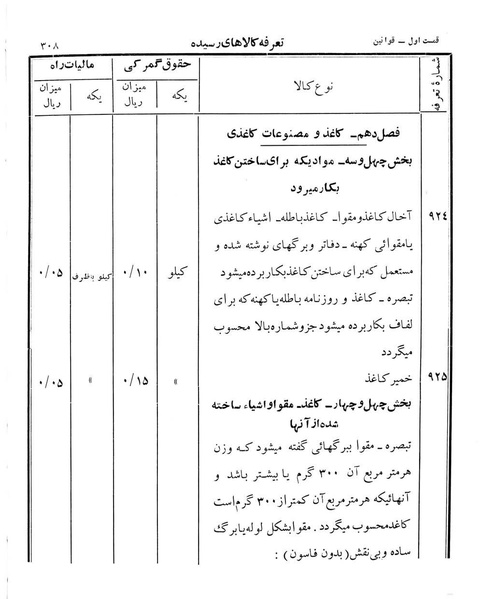 قسمت اول ـ قوانین
تعرفه کالاهای رسیده
۳۰۸
شمارهٔ تعرفه
نوع کالا
حقوق گمرکی
مالیات راه
یکه
میزان ریال
یکه
میزان ریال
فصل دهم ـ کاغذ و مصنوعات کاغذی
بخش چهل و سه ـ موادیکه برای ساختن کاغذ
بکار میرود
۹۲۴
آخال کاغذ و مقوا ـ کاغذ باطله ـ اشیاء کاغذی
یا مقوائی کهنه ـ دفاتر و برگهای نوشته شده و
مستعمل که برای ساختن کاغذ بکار برده میشود
کیلو
۰/۱۰
کیلو با ظرف
۰/۰۵
تبصره ـ کاغذ و روزنامه باطله یا کهنه که برای
لفاف بکار برده میشود جزو شماره بالا محسوب
میگردد
۹۲۵
خمیر کاغذ
»
۰/۱۵
»
۰/۰۵
بخش چهل و چهار ـ کاغذ ـ مقوا و اشیاء ساخته
شده از آنها
تبصره ـ مقوا ببرگهائی گفته میشود که وزن
هر متر مربع آن ۳۰۰ گرم یا بیشتر باشد و
آنهائیکه هر متر مربع آن کمتر از ۳۰۰ گرم است
کاغذ محسوب میگردد . مقوا بشکل لوله یا برگ
ساده و بی‌نقش (بدون فاسون) :